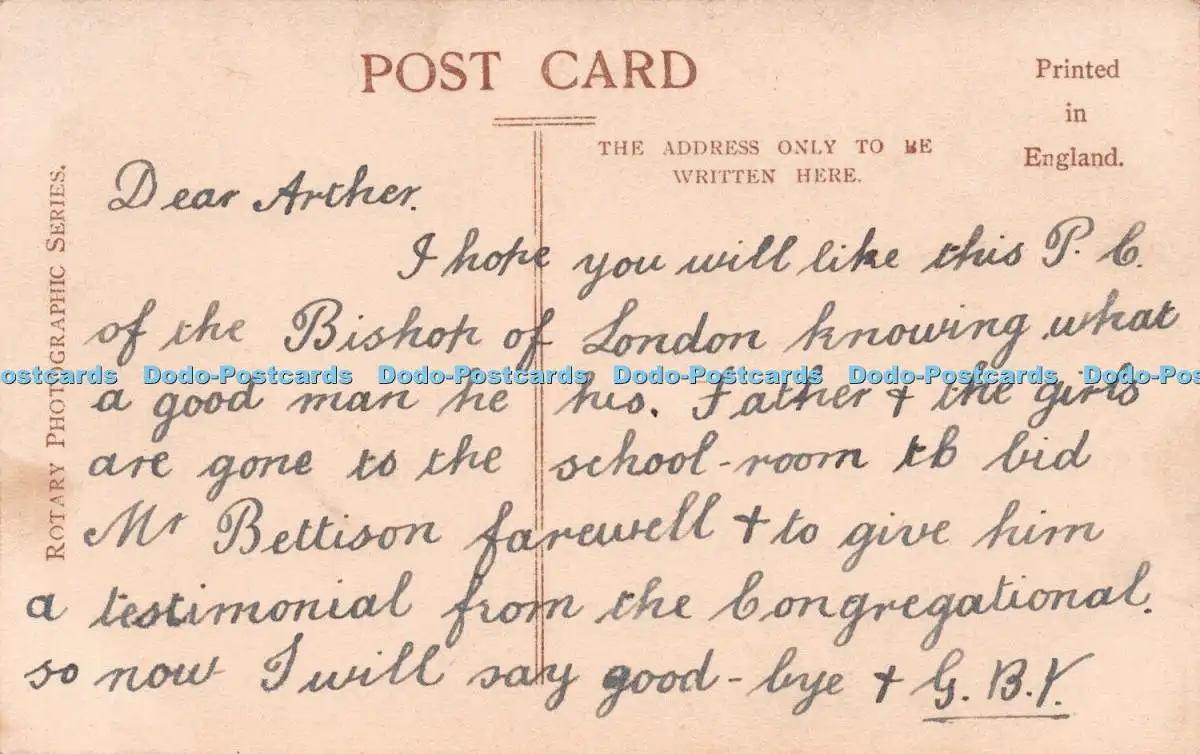 POST CARD
Printed
in
England.
THE ADDRESS ONLY TO BE
WRITTEN HERE.
ROTARY PHOTOGRAPHIC SERIES.
Dear Arther.
I hope you will like this P. C.
of the Bishop of London knowing what
ostcards Dodo-Postcards Dodo-Postcards Dodo-Postcards Dodo-Postcards Dodo-Pos
a good man he his. Father + the girls
are gone to the school-room to bid
Mr Bettison farewell + to give him
a testimonial from the Congregational.
so now I will say good-bye + G. B. Y.